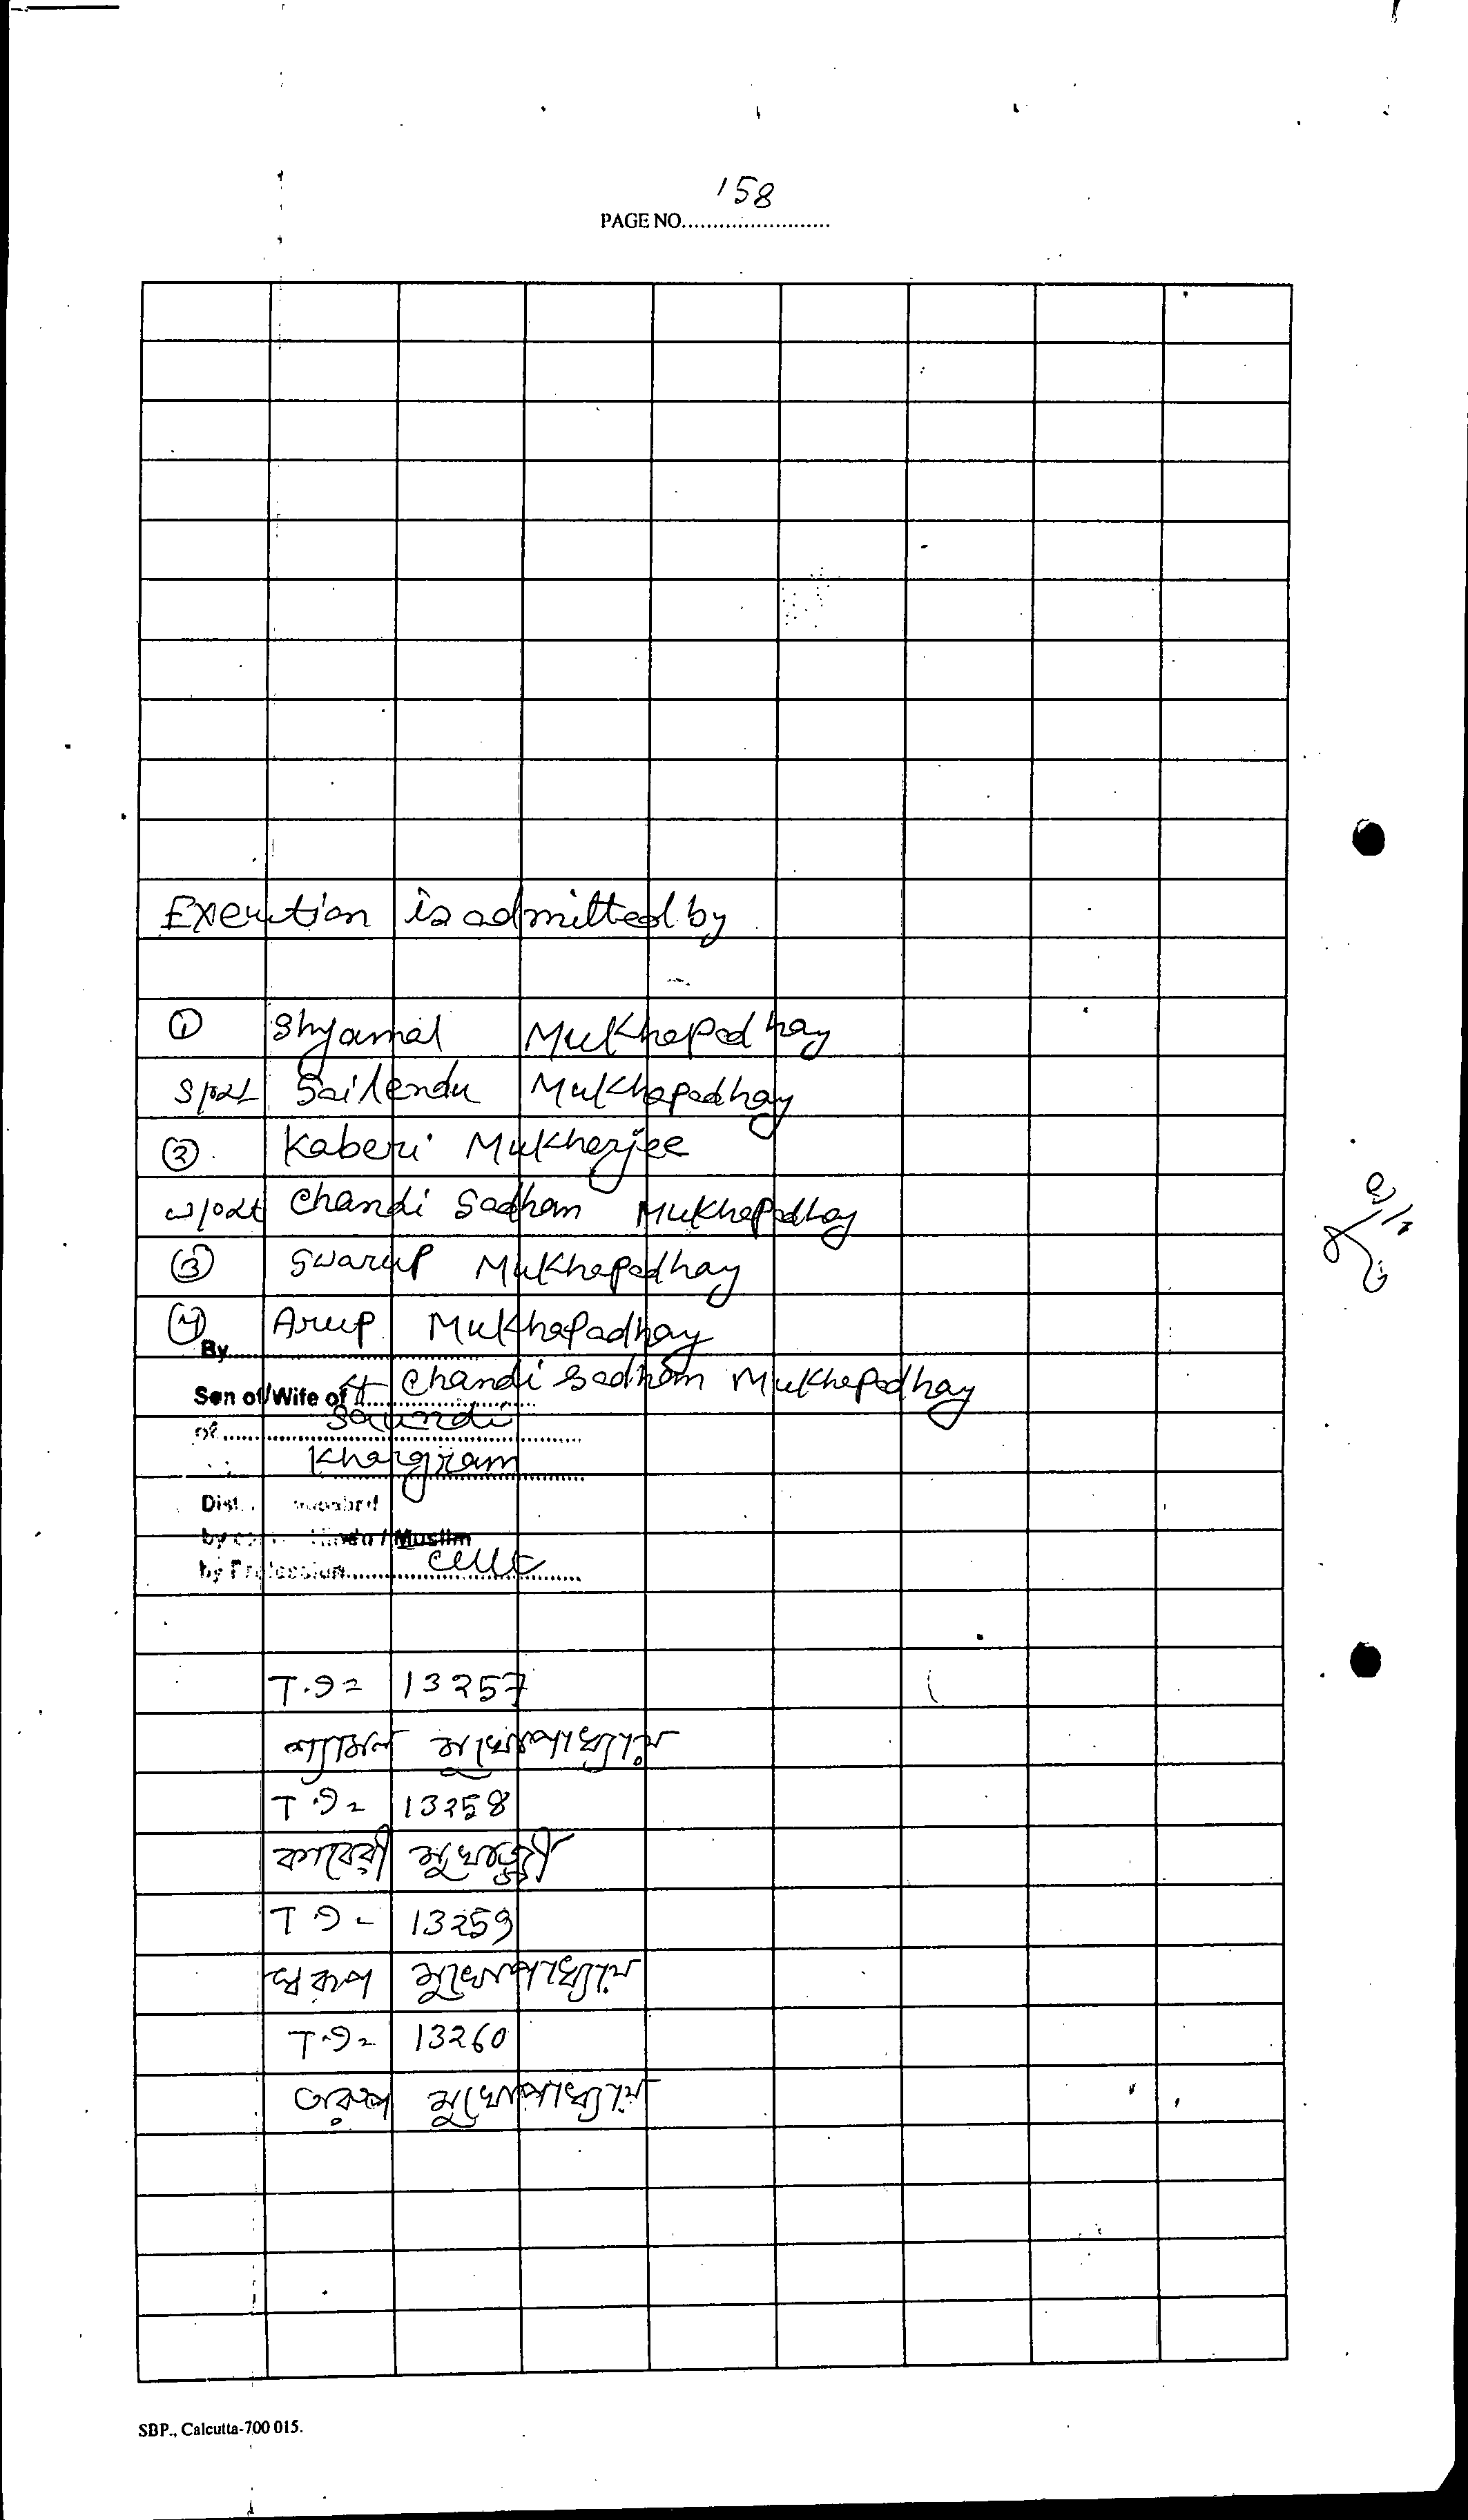 158
PAGE NO.........................
Execution is admitted by
① Shyamal Mukhapadhay
S/o Lt Sailendu Mukhapadhay
② Kaberi Mukherjee
W/o Lt Chandi Sadhan Mukhapadhay
③ Swarup Mukhapadhay
④ Arup Mukhapadhay
By
Son of/Wife of Lt Chandi Sadhan Mukhapadhay
of Saundi
Khargram
Dist.
by Hindu / Muslim
by Profession
T.൭ = 13257
শ্যামল মুখোপাধ্যায়
T.൭ = 13258
কাবেরী মুখার্জ্জী
T.൭ = 13259
স্বরূপ মুখোপাধ্যায়
T.൭ = 13260
অরূপ মুখোপাধ্যায়
SBP., Calcutta-700 015.